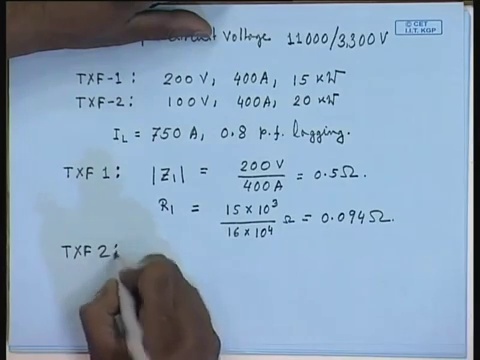 Voltage 11000/3,300V
© CET
I.I.T. KGP
TXF-1: 200 V, 400A, 15 KW
TXF-2: 100 V, 400A, 20 KW
IL = 750 A, 0.8 p.f. lagging.
TXF 1: |Z1| = 200 V / 400 A = 0.5Ω.
R1 = 15 × 10³ / 16 × 10⁴ Ω = 0.094Ω.
TXF 2: